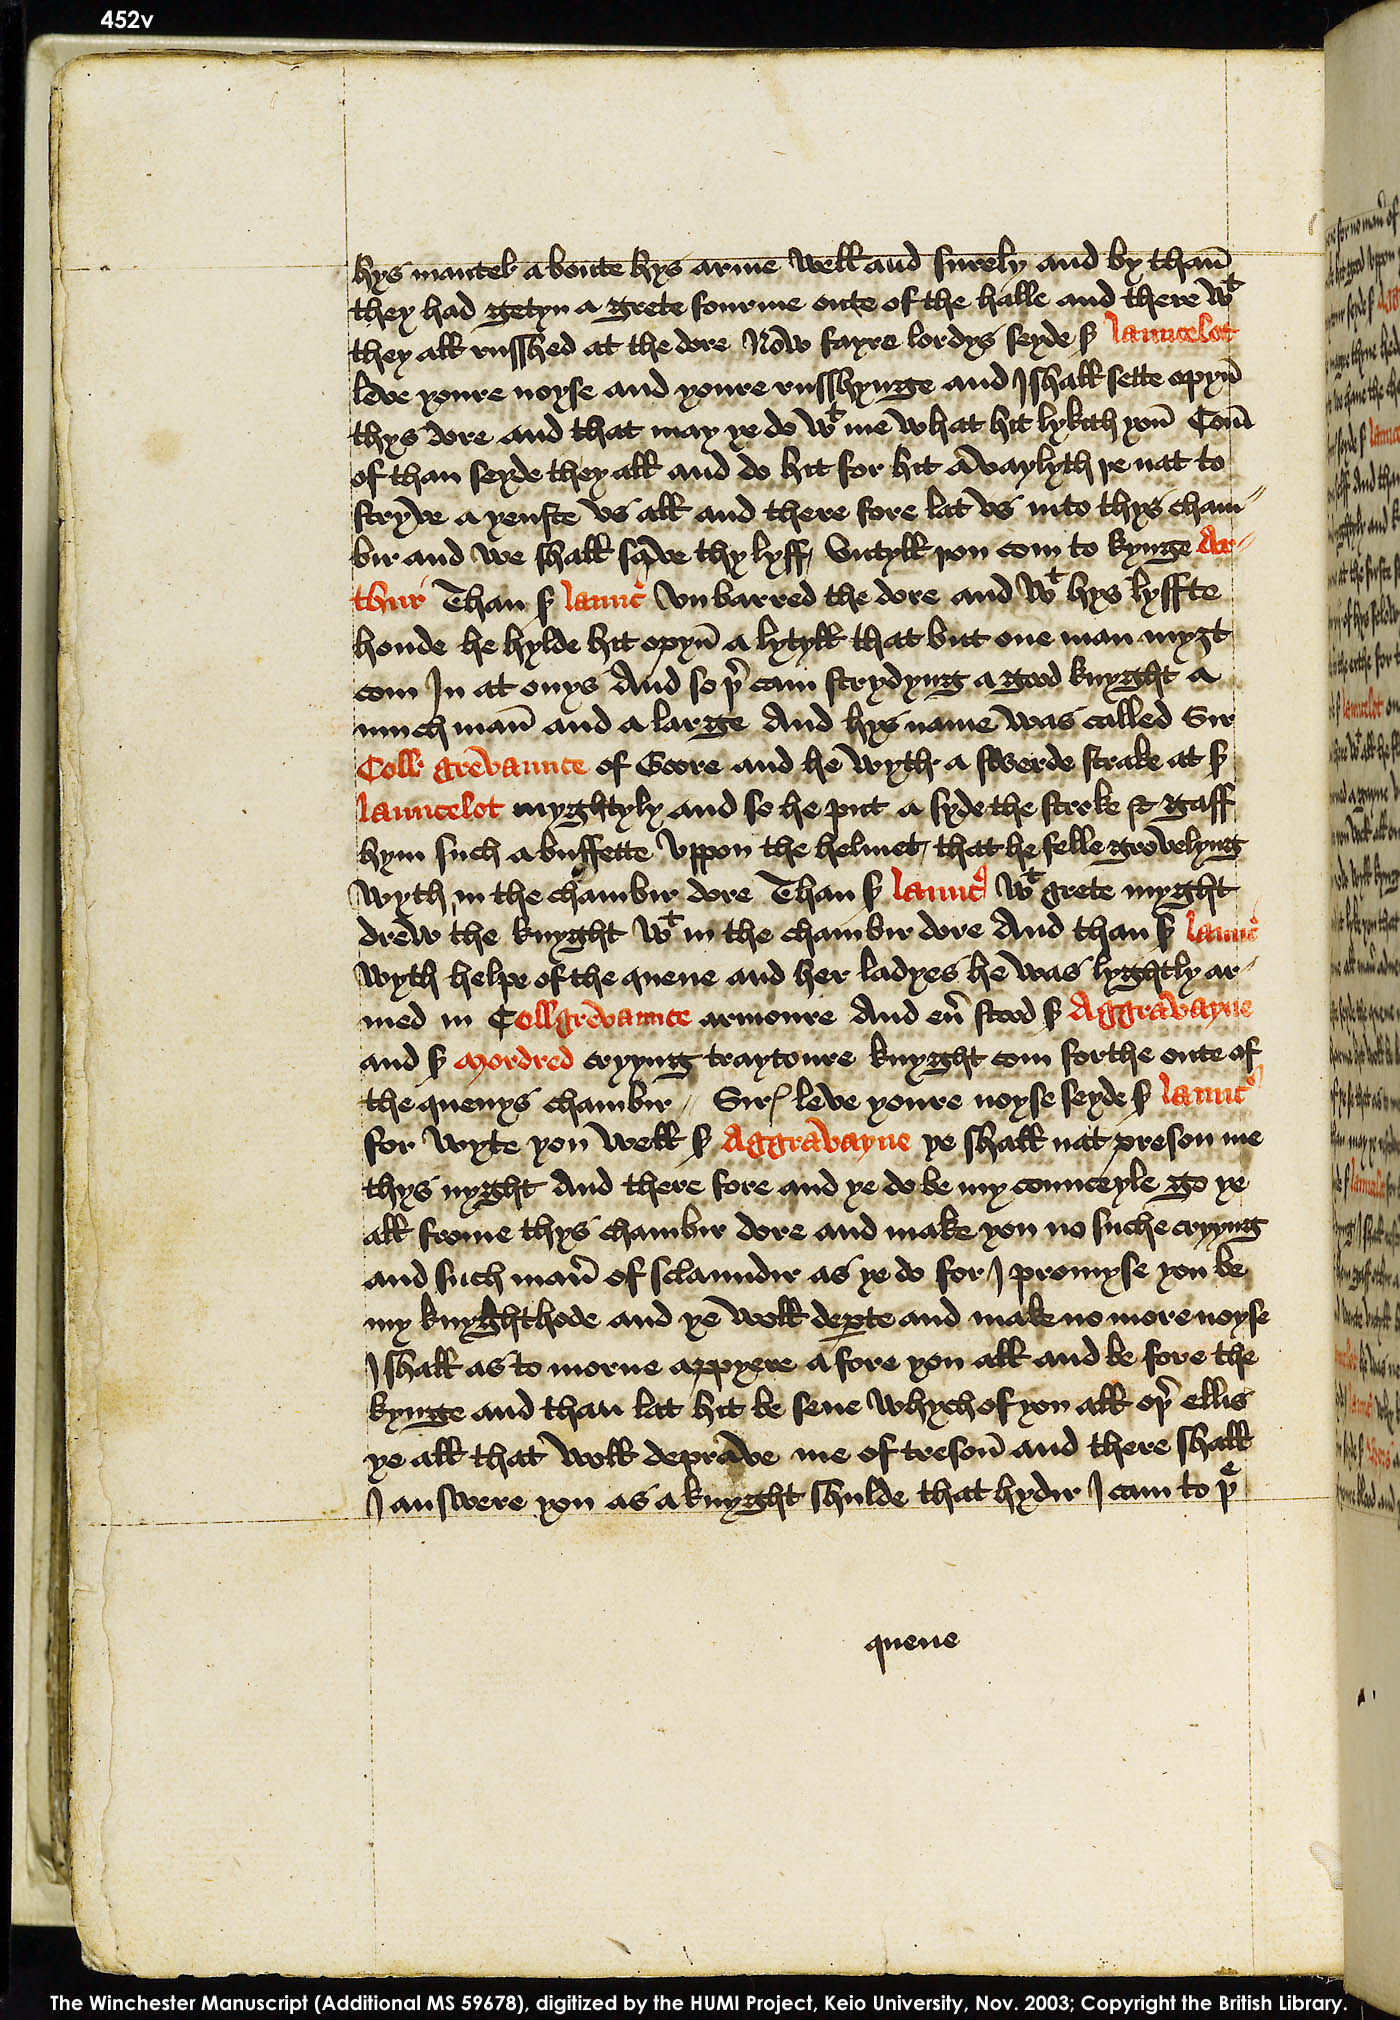 452v
hys mantel aboute hys arme well and surely and by than̄
they had getyn a grete fourme oute of the halle and there wᵗ
they all russhed at the dore Now fayre lordys seyde sʳ launcelot
leve youre noyse and youre russhynge and I shall sette opyn̄
thys dore and that may ye do wᵗ me what hit lykith you Com̄
of than seyde they all and do hit for hit avaylyth ye nat to
stryve a yenste vs all and there fore lat vs in to thys cham//
bir and we shall save thy lyff / Vntyll you com to kynge Ar//
thur Than sʳ launc̉ vn barred the dore and wᵗ hys lyffte
honde he hylde hit opyn̄ a lytyll that but one man myȝt
com In at onys And so þ̉ cam strydyng a good knyght a
much man̄ and a large And hys name was called Sir
Coll grevaunce of Goore and he wyth a swerde strake at sʳ
launcelot myghtyly and so he put a syde the stroke & gaff
hym such a buffette vppon the helmet / that he felle grovelyng
wyth in the chambir dore Than sʳ launc̉ wᵗ grete myght
drew the knyght wᵗ in the chambir dore And than sʳ launc̉
wyth helpe of the quene and her ladyes he was lyghtly ar//
med in Collgrevaunce armoure And eủ stood sʳ Aggravayne
and sʳ Mordred cryyng traytoure knyght com forthe oute of
the quenys chambir // Sirꝭ leve youre noyse seyde sʳ launc̉
for wyte you well sʳ Aggravayne ye shall nat preson me
thys nyght And there fore and ye do be my counceyle go ye
all frome thys chambir dore and make you no suche cryyng
and such man̉ of sclaundir as ye do for I promyse you be
my knyghthode and ye woll deꝑte and make no more noyse
I shall as to morne appyere a fore you all and be fore the
kynge and than lat hit be sene whych of you all oþ̉ ellis
ye all that woll deprave me of treson̄ and there shall
I answere you as a knyght shulde that hydir I cam to þᵉ
quene
The Winchester Manuscript (Additional MS 59678), digitized by the HUMI Project, Keio University, Nov. 2003; Copyright the British Library.